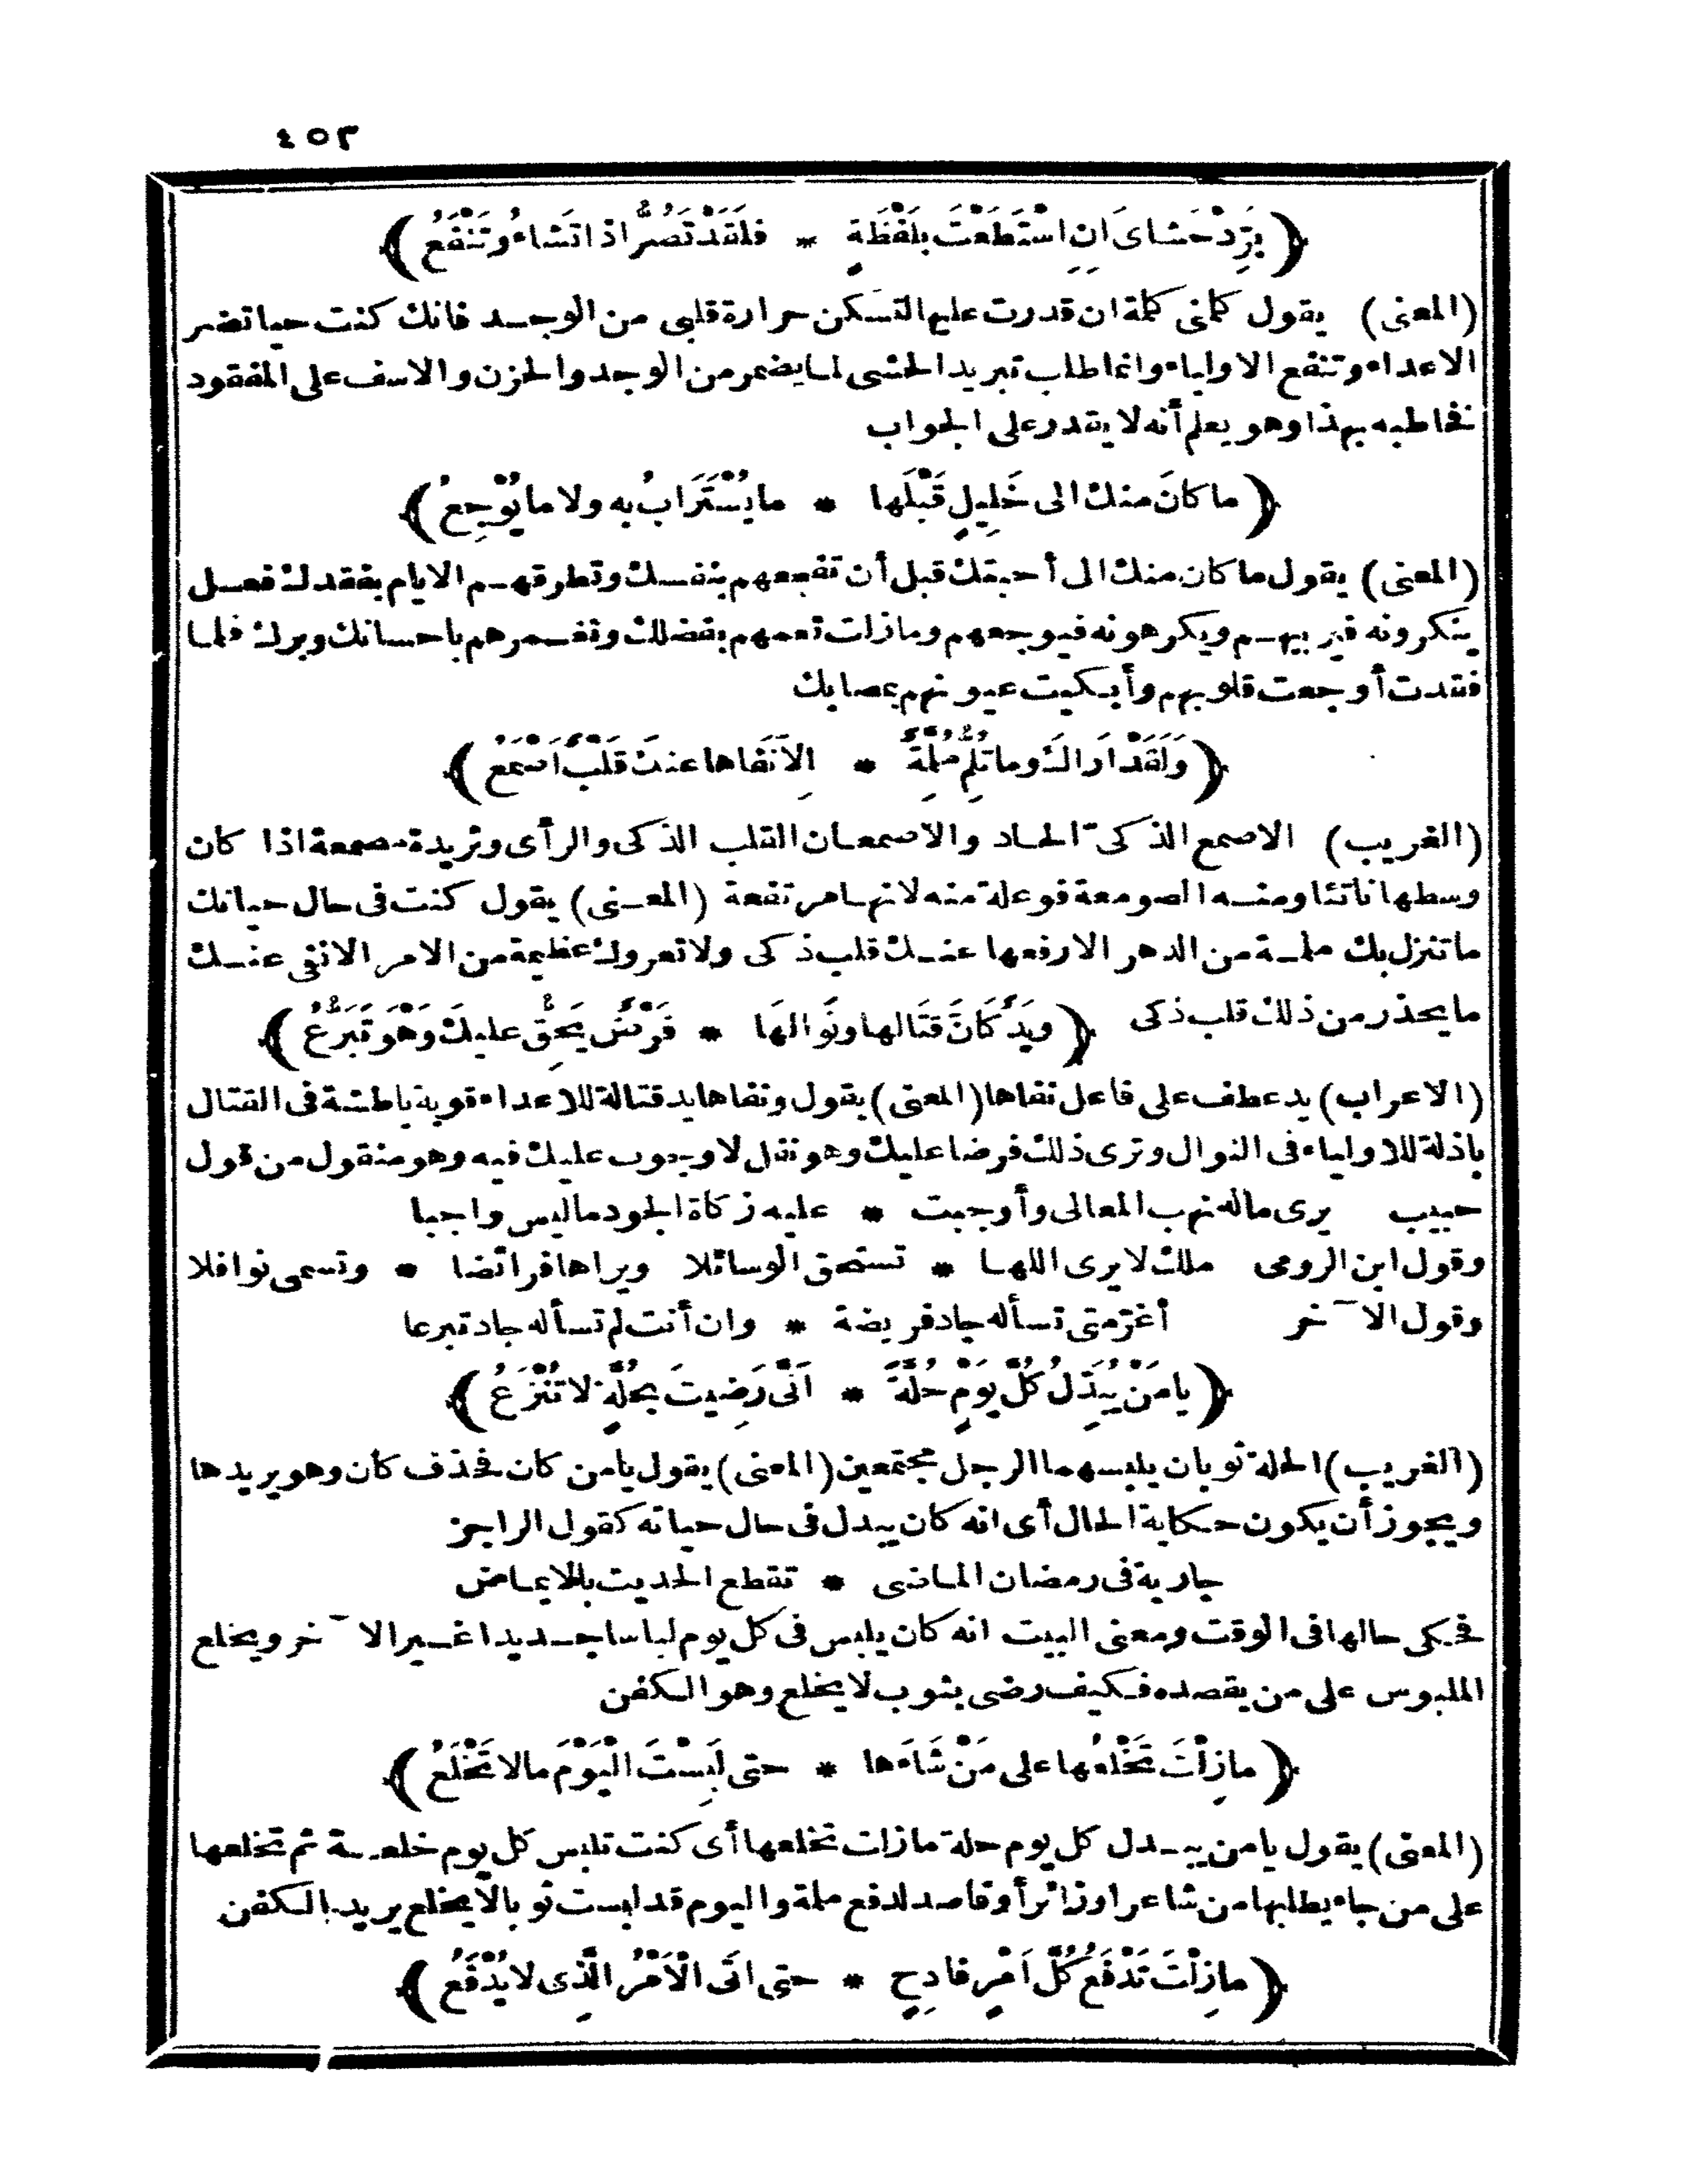 ٤٥٣
﴿بَرِّدْ حَشَاىَ اَنِ اسْتَطَعْتَ بِلَفْظَةٍ * فلَقَدْ تَضُرُّ اذا تَشاءُ وتَنْفَعُ﴾
(المعنى) يقول كلنى كلمة ان قدرت عليها لتسكن حرارة قلبى من الوجد فانك كنت حيا تضر
الاعداء وتنفع الاولياء وانما طلب تبريد الحشى لما يضمر من الوجد والحزن والاسف على المفقود
نخاطبه بهذا وهو يعلم أنه لا يقدر على الجواب
﴿ما كانَ منك الى خَلِيلٍ قَبْلَها * ما يُسْتَرَابُ به ولا ما يُوْجِعُ﴾
(المعنى) يقول ما كان منك الى أحبتك قبل أن تفجعهم بنفسك وتطرقهم الايام بفقدك فعل
ينكرونه فيريبهم ويكرهونه فيوجعهم وما زلت تعمهم بفضلك وتغمرهم باحسانك وبرك فلما
فقدت أوجعت قلوبهم وأبكيت عيونهم بمصابك
﴿وَلَقَدْ اَراكَ وما تُلِمُّ مُلِمَّةٌ * اِلَّا نَفَاها عنكَ قَلْبٌ اَصْمَعُ﴾
(الغريب) الاصمع الذكىّ الحاد والاصمعان القلب الذكى والرأى وثريدة مصمعة اذا كان
وسطها ناتئا ومنه الصومعة فوعلة منه لانها مرتفعة (المعنى) يقول كنت فى حال حياتك
ما تنزل بك ملمة من الدهر الا رفعها عنك قلب ذكى ولا تعروك عظيمة من الامر الا نفى عنك
ما يحذر من ذلك قلب ذكى ﴿ويَدٌ كَانَّ قتَالها ونَوالهَا * فَرْضٌ يَحِقُّ عليكَ وَهْوَ تَبَرُّعُ﴾
(الاعراب) يد عطف على فاعل نفاها (المعنى) يقول ونفاها يد قتالة للاعداء قوية باطشة فى القتال
باذلة للاولياء فى النوال وترى ذلك فرضا عليك وهو نفل لا وجوب عليك فيه وهو منقول من قول
حبيب يرى ماله نهب المعالى وأوجبت * عليه زكاة الجود ما ليس واجبا
وقول ابن الرومى ملك لا يرى اللها * تستحق الوسائلا ويراها فرائضا * وتسمى نوافلا
وقول الآخر أغرّ متى تسأله جاد فريضة * وان أنت لم تسأله جاد تبرعا
﴿يا مَنْ يُبَدِّلُ كُلَّ يَوْمٍ حُلَّةً * اَنَّى رَضِيتَ بِحُلَّةٍ لا تُنْزَعُ﴾
(الغريب) الحلة ثوبان يلبسهما الرجل مجتمعين (المعنى) يقول يامن كان فحذف كان وهو يريدها
ويجوز أن يكون حكاية الحال أى انه كان يبدل فى حال حياته كقول الراجز
جارية فى رمضان الماضى * تقطع الحديث بالايماض
فحكى حالها فى الوقت ومعنى البيت انه كان يلبس فى كل يوم لباسا جديدا غير الآخر ويخلع
الملبوس على من يقصده فكيف رضى بثوب لا يخلع وهو الكفن
﴿مازِلْتَ تَخْلَعُها على مَنْ شَاءَها * حتى لَبِسْتَ الْيَوْمَ مالا تَخْلَعُ﴾
(المعنى) يقول يامن يبدل كل يوم حلة مازلت تخلعها أى كنت تلبس كل يوم خلعة ثم تخلعها
على من جاء يطلبها من شاعر اوزائر أو قاصد لدفع ملمة واليوم قد لبست ثوبا لا يخلع يريد بالكفن
﴿مازِلْتَ تَدْفَعُ كُلَّ اَمْرٍ فادِحٍ * حتى اتَى الْاَمْرُ الَّذِى لا يُدْفَعُ﴾